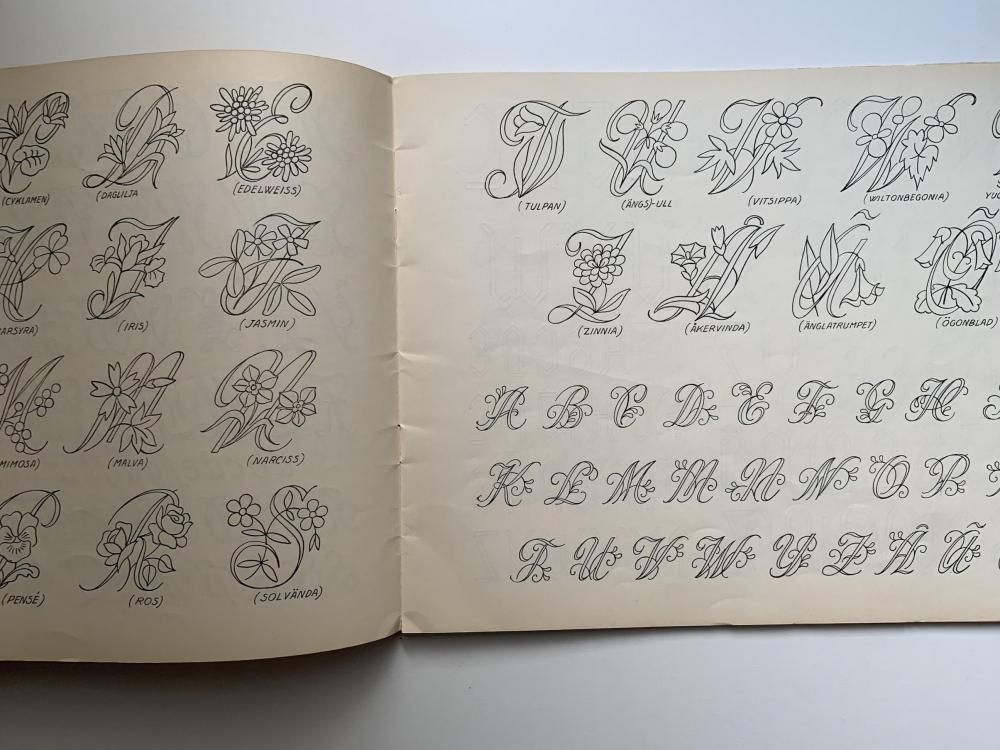 C D E
(CYKLAMEN) (DAGLILJA (EDELWEISS)
H I J
ARSYRA) (IRIS) (JASMIN)
M M N
MIMOSA) (MALVA) (NARCISS)
P R S
(PENSÉ) (ROS) (SOLVÄNDA)
T U V W
(TULPAN) (ÄNGS)-ULL (VITSIPPA) (WILTONBEGONIA) YUC
Z Å Ä Ö
(ZINNIA) (ÅKERVINDA) (ÄNGLATRUMPET) (ÖGONBLAD)
A B C D E F G H
K L M M N N O P
T U V W Y Z Å Ä